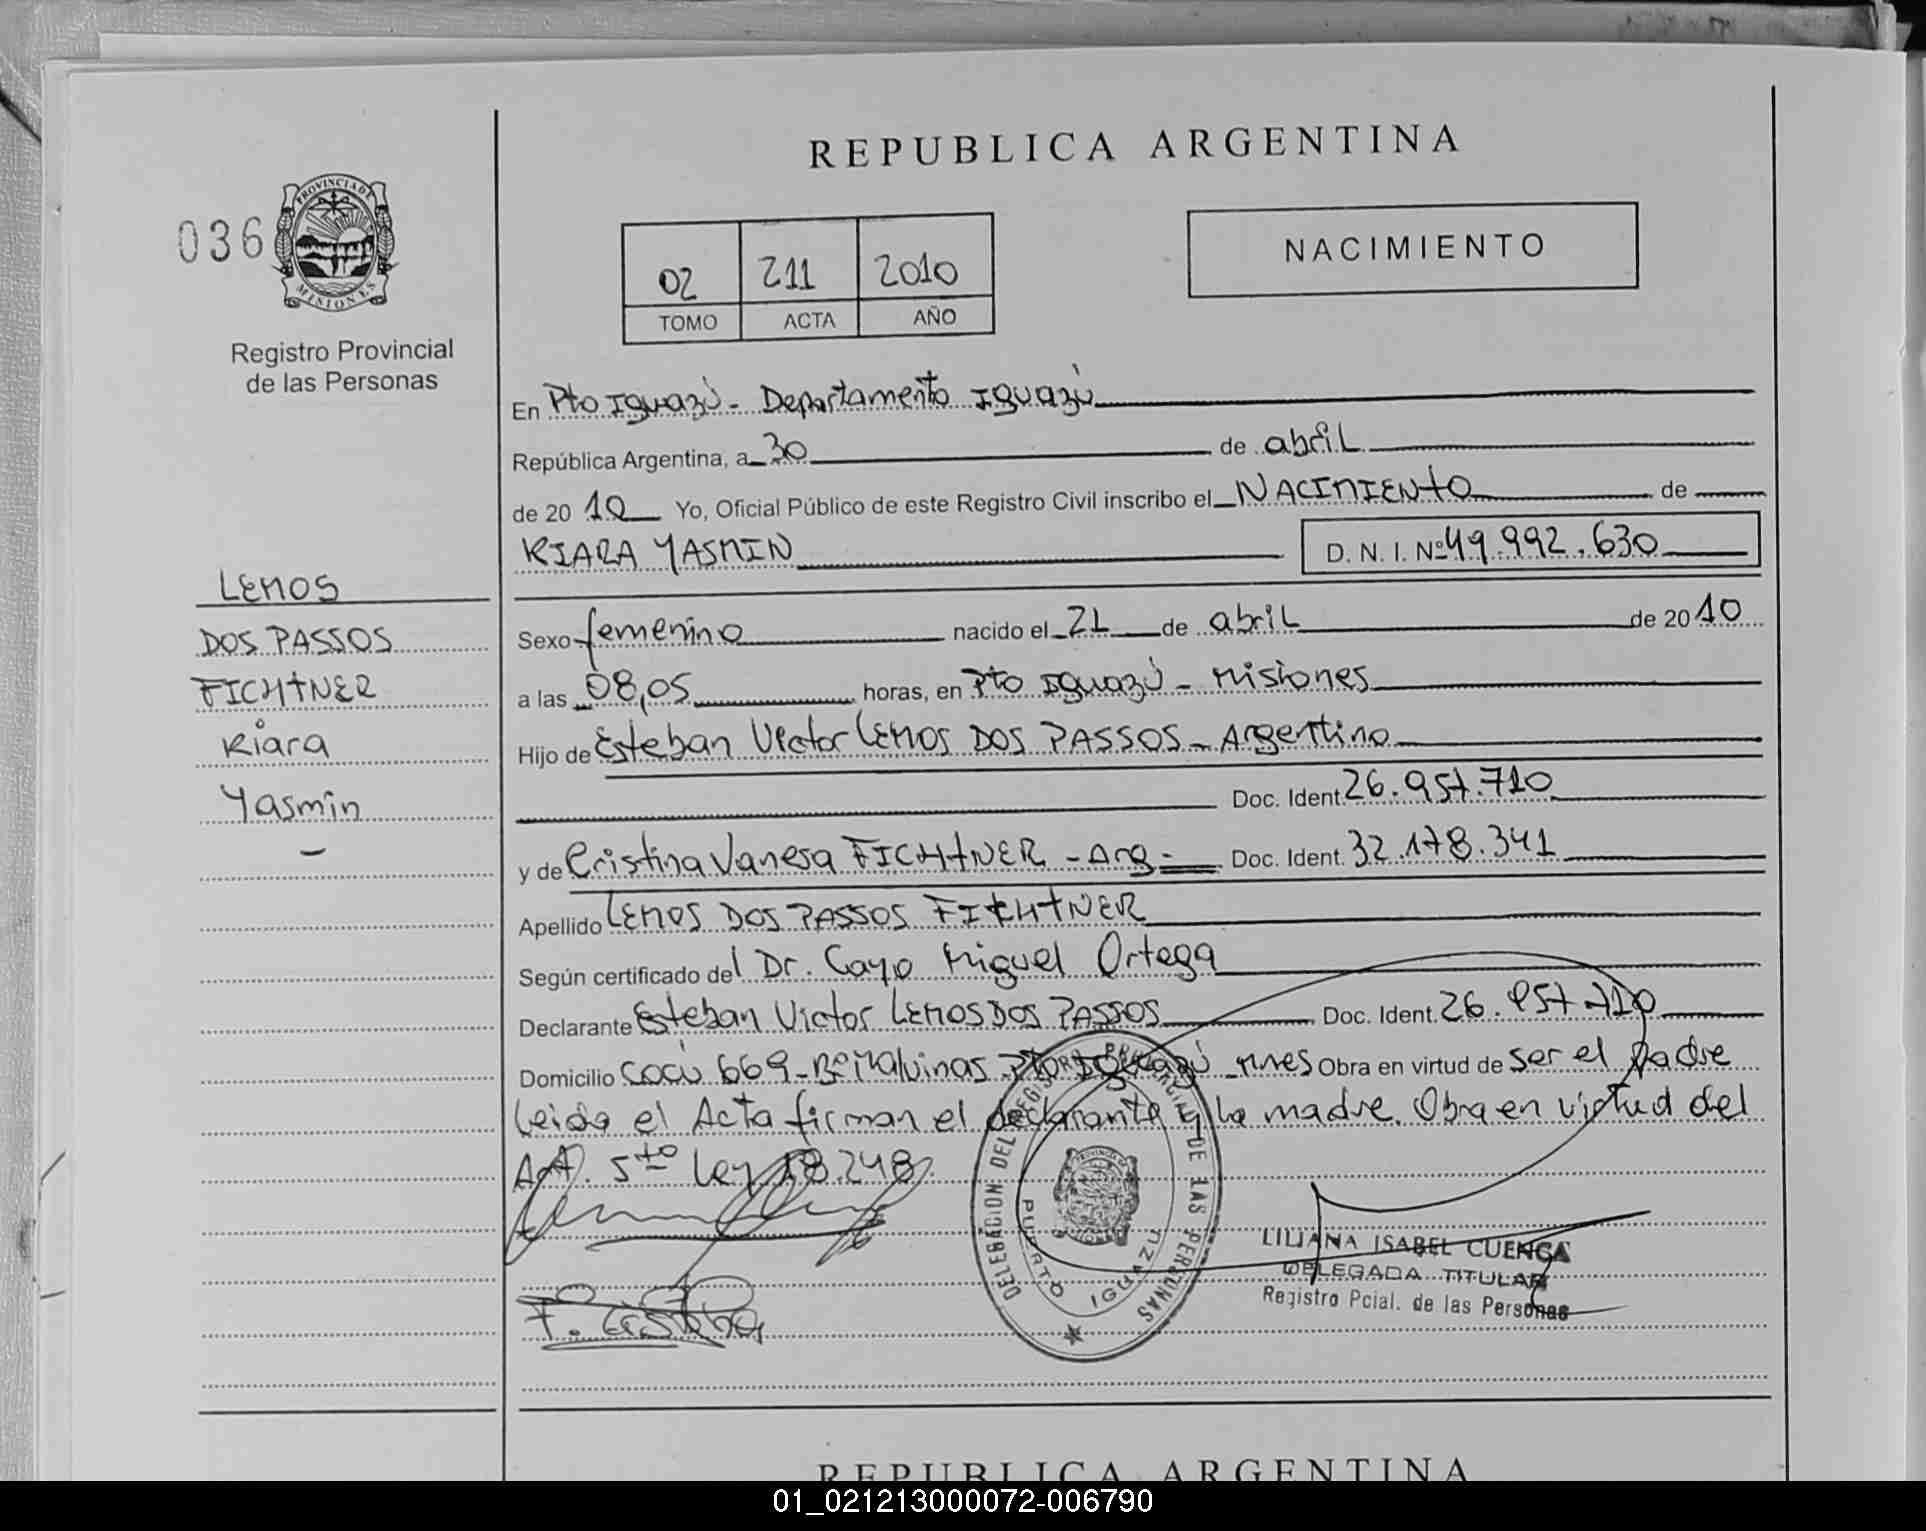 REPUBLICA ARGENTINA
036
PROVINCIA DE
MISIONES
Registro Provincial
de las Personas
02 211 2010
TOMO ACTA AÑO
NACIMIENTO
En Pto Iguazú - Departamento Iguazú
República Argentina, a 30 de abril
de 2010 Yo, Oficial Público de este Registro Civil inscribo el NACIMIENTO de
KIARA YASMIN D. N. I. Nº 49.992.630
LEMOS
DOS PASSOS
FICHTNER
Kiara
Yasmin
-
Sexo femenino nacido el 21 de abril de 2010
a las 08,05 horas, en Pto Iguazú - Misiones
Hijo de Esteban Victor LEMOS DOS PASSOS - Argentino
Doc. Ident. 26.957.710
y de Cristina Vanesa FICHTNER - Arg - Doc. Ident. 32.178.341
Apellido LEMOS DOS PASSOS FICHTNER
Según certificado del Dr. Cayo Miguel Ortega
Declarante Esteban Victor LEMOS DOS PASSOS Doc. Ident. 26.957.710
Domicilio Cocú 669 - Bº Malvinas Pto Iguazú - Mnes Obra en virtud de ser el padre
Leida el Acta firman el declarante y la madre. Obra en virtud del
Art. 5to Ley 18.248.
DELEGACION DEL REGISTRO PROVINCIAL DE LAS PERSONAS
PUERTO IGUAZU
LILIANA ISABEL CUENCA
DELEGADA TITULAR
Registro Pcial. de las Personas
REPUBLICA ARGENTINA
01_021213000072-006790